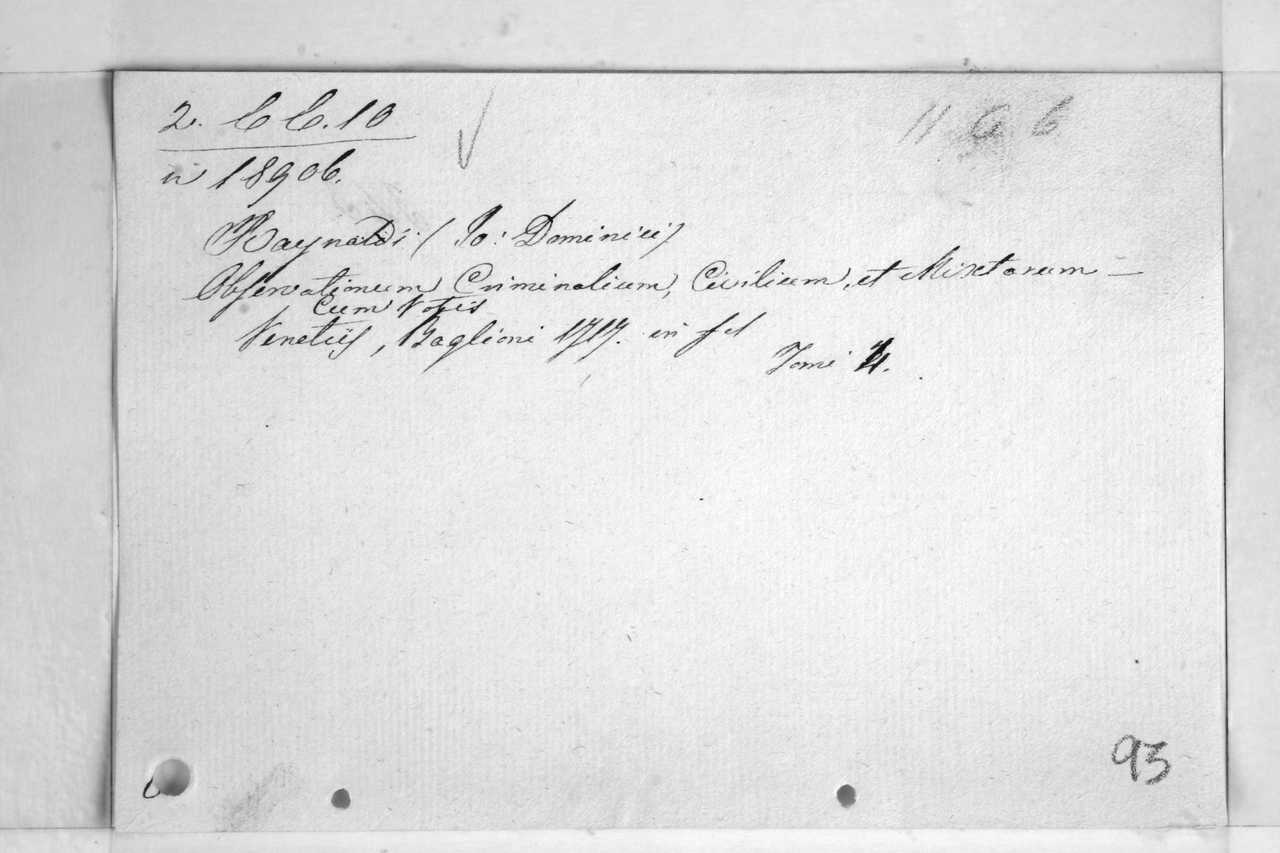 2. C C. 10
11 G 6
n 18906.
Raynaldi (Jo: Dominici)
Observationum Criminalium, Civilium, et Mixtarum —
Cum Notis
Venetiis, Baglioni 1717. in fol
Tomi 4.
93